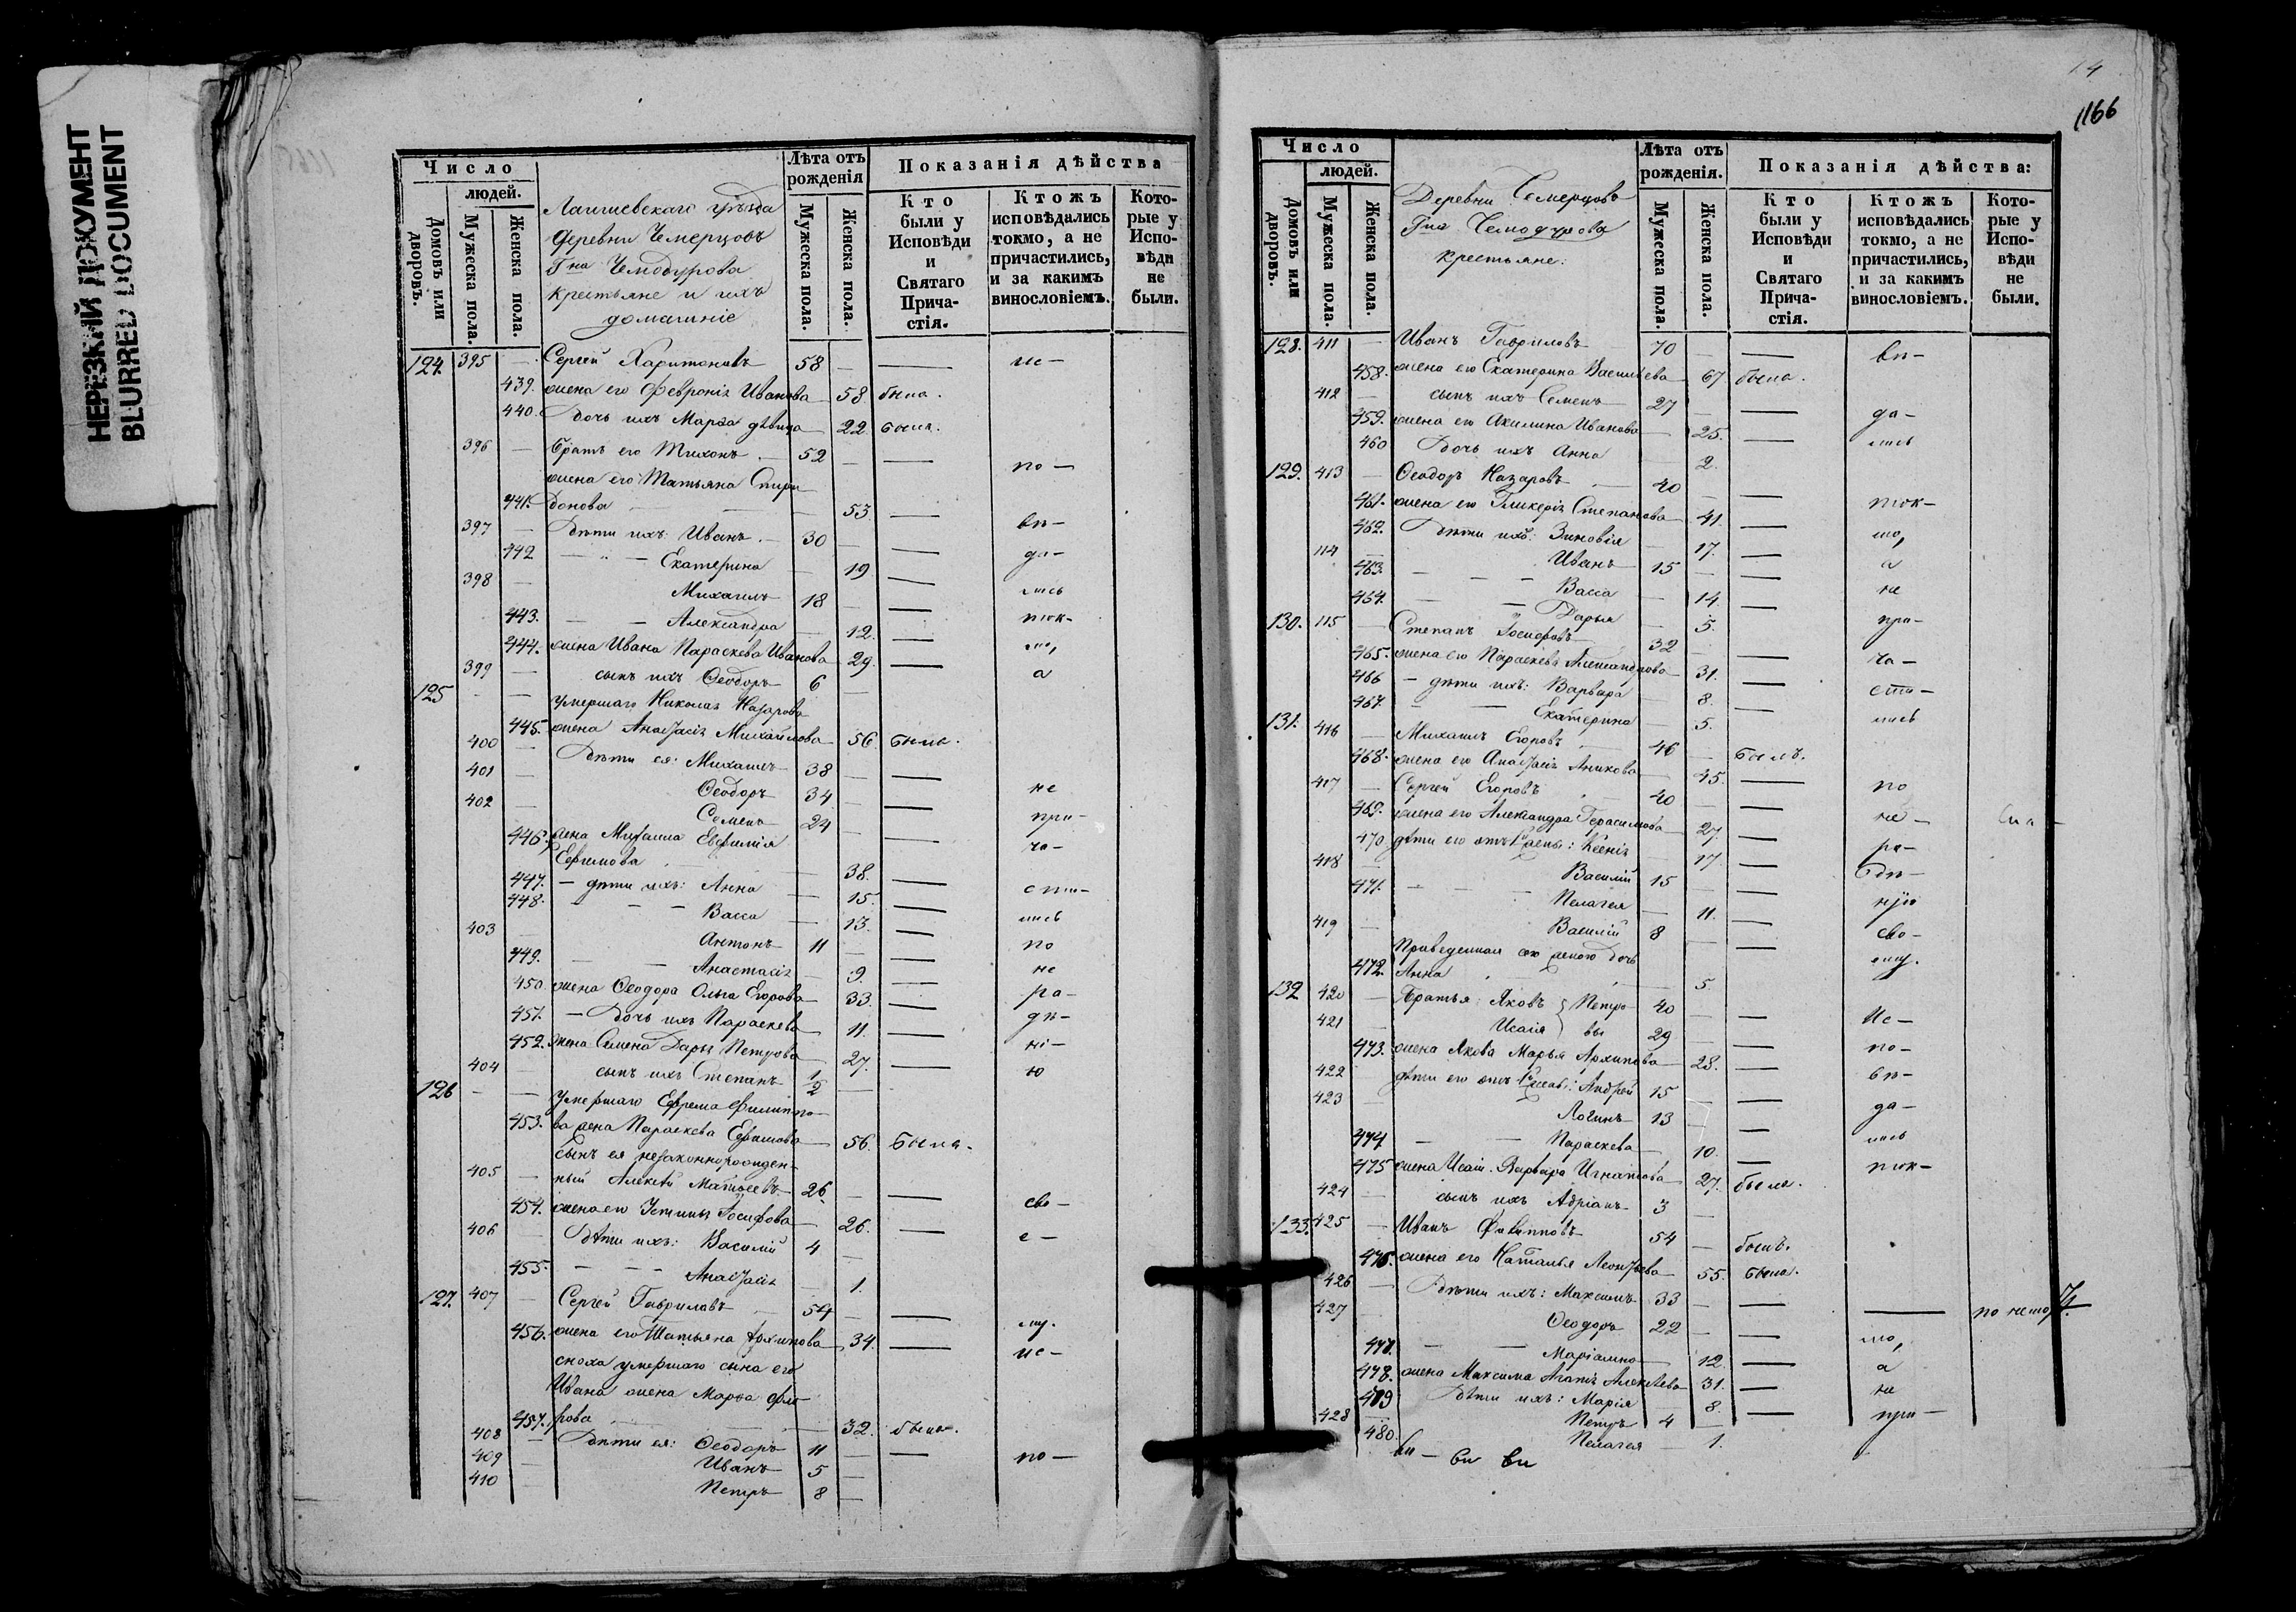 НЕРЕЗКИЙ ДОКУМЕНТ
BLURRED DOCUMENT
Число
людей.
Домовъ или дворовъ.
Мужеска пола.
Женска пола.
Лаишевскаго уѣзда
Деревни Чемерцовъ
Гна Чемодурова
крестьяне и ихъ
домашніе
Лѣта отъ рожденія
Мужеска пола.
Женска пола.
Показанія дѣйства
Кто были у Исповѣди и Святаго Причастія.
Ктожъ исповѣдались токмо, а не причастились, и за какимъ винословіемъ.
Которые у Исповѣди не были.
124. 395 — Сергей Харитоновъ 58 — — ис-
439. жена его Февронія Иванова 58 была.
440. Дочь ихъ Марѳа дѣвица 22 была.
396 — Братъ его Тихонъ 52 — — по-
жена его Татьяна Спири
441. донова 53 —
397 — Дѣти ихъ: Иванъ 30 — — вѣ-
442 Екатерина 19 — да-
398 — Михаилъ 18 — — лись
443. Александра 12. — ток-
444. жена Ивана Параскева Иванова 29. — мо,
399 — сынъ ихъ Ѳеодоръ 6 — а
125 — — умершаго Николая Назарова
445. жена Анастасія Михайлова 56 была.
400 — Дѣти ея: Михаилъ 38 — —
401 — Ѳеодоръ 34 — — не
402 — Семенъ 24 — — при-
446. жена Михаила Евѳимія ча-
Ефимова 38. —
447. — дѣти ихъ: Анна 15. — сти-
448. Васса 13. — лись
403 — Антонъ 11 — — по
449. Анастасія 9. — не
450. жена Ѳеодора Ольга Егорова 33. — ра-
451. — Дочь ихъ Параскева 11. — дѣ-
452. жена Семена Дарья Петрова 27. — ні-
404 — сынъ ихъ Степанъ 1/2 — ю
126 — — умершаго Ефрема Филиппо-
453. ва жена Параскева Ефимова 56. Была.
Сынъ ея незаконнорожден-
405 — ный Алексѣй Матвѣевъ 26. — — сво-
454. жена его Устинья Іосифова 26. — е-
406 — Дѣти ихъ: Василій 4 —
455. Анастасія 1.
127. 407 — Сергей Гавриловъ 54 — — му.
456. жена его Татьяна Архипова 34. — ис-
сноха умершаго сына его
Ивана жена Марѳа Фло
457. рова 32. была.
408 — Дѣти ея: Ѳеодоръ 11 — — по-
409 — Иванъ 5 —
410 — Петръ 8 —
14
1166
Число
людей.
Домовъ или дворовъ.
Мужеска пола.
Женска пола.
Деревни Чемерцовъ
Гна Чемодурова
крестьяне:
Лѣта отъ рожденія.
Мужеска пола.
Женска пола.
Показанія дѣйства:
Кто были у Исповѣди и Святаго Причастія.
Ктожъ исповѣдались токмо, а не причастились, и за какимъ винословіемъ.
Которые у Исповѣди не были.
128. 411 — Иванъ Гавриловъ 70 — — вѣ-
458. жена его Екатерина Васильева 67 была.
412 — сынъ ихъ Семенъ 27 — — да-
459. жена его Акилина Иванова 25. — лись
460 Дочь ихъ Анна 2.
129. 413 — Ѳеодоръ Назаровъ 40 — — ток-
461. жена его Гликерія Степанова 41. — мо,
462. Дѣти ихъ: Зиновія 17. —
114 — Иванъ 15 — — а
463. Васса 14. — не
464. Дарья 5.
130. 115 — Степанъ Іосифовъ 32 — — при-
465. жена его Параскева Александрова 31. — ча-
466 — дѣти ихъ: Варвара 8. — сти-
467. Екатерина 5. лись
131. 416 — Михаилъ Егоровъ 46 — былъ.
468. жена его Анастасія Аникова 45. —
417 — Сергей Егоровъ 40 — — по
469. жена его Александра Герасимова 27. — не-
470 дѣти его отъ 1й жены: Ксенія 17. — ра-
418 — Василій 15 — — дѣ-
471. Пелагея 11. — нію
419 — Василій 8 — — сво-
Приведенная съ женою дочь ему.
472. Анна 5.
132 420 — Братья: Яковъ } Петро 40 — — Ис-
421 — Исаія } вы 29 — — по-
473. жена Якова Марья Архипова 28. — вѣ-
422 дѣти его отъ 1й жены: Андрей 15 — —
423 — Логинъ 13 — — да-
474 — — Параскева 10. — лись
475 жена Исаіи Варвара Игнатова 27. была. ток-
424 — сынъ ихъ Адріанъ 3 —
133. 425 — Иванъ Филипповъ 54 — былъ.
476. жена его Наталья Леонтьева 55. была.
426 — Дѣти ихъ: Максимъ 33 — — —
427 Ѳеодоръ 22 — — мо,
477. Маріамна 12. — а
478. жена Максима Агаѳья Алексѣева 31. — не
479 Дѣти ихъ: Марія 8. — при-
428 — Петръ 4 —
480. Пелагея — 1.